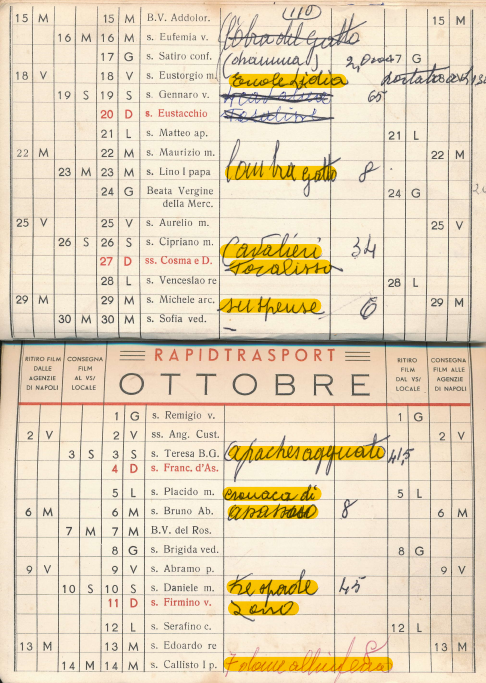 15 M 15 M B.V. Addolor. (110) 15 M
16 M 16 M s. Eufemia v. l'ombra del gatto
17 G s. Satiro conf. (dramma) 17 G
18 V 18 V s. Eustorgio m. Ercole Lidia
19 S 19 S s. Gennaro v. 65
20 D s. Eustacchio
21 L s. Matteo ap. 21 L
22 M 22 M s. Maurizio m. 22 M
23 M 23 M s. Lino I papa l'ombra gatto 8
24 G Beata Vergine 24 G
della Merc.
25 V 25 V s. Aurelio m. 25 V
26 S 26 S s. Cipriano m. Cavalieri 34
27 D ss. Cosma e D.
28 L s. Venceslao re 28 L
29 M 29 M s. Michele arc. suspense 6 29 M
30 M 30 M s. Sofia ved.
RITIRO FILM DALLE AGENZIE DI NAPOLI
CONSEGNA FILM AL VS/ LOCALE
RAPIDTRASPORT
OTTOBRE
RITIRO FILM DAL VS/ LOCALE
CONSEGNA FILM ALLE AGENZIE DI NAPOLI
1 G s. Remigio v. 1 G
2 V 2 V ss. Ang. Cust. 2 V
3 S 3 S s. Teresa B.G. apaches agguato 41,5
4 D s. Franc. d'As.
5 L s. Placido m. cronaca di 5 L
6 M 6 M s. Bruno Ab. 8 6 M
7 M 7 M B.V. del Ros.
8 G s. Brigida ved. 8 G
9 V 9 V s. Abramo p. 9 V
10 S 10 S s. Daniele m. tre spade 45
11 D s. Firmino v. zorro
12 L s. Serafino c. 12 L
13 M 13 M s. Edoardo re 13 M
14 M 14 M s. Callisto I p. 7 donne all'inferno